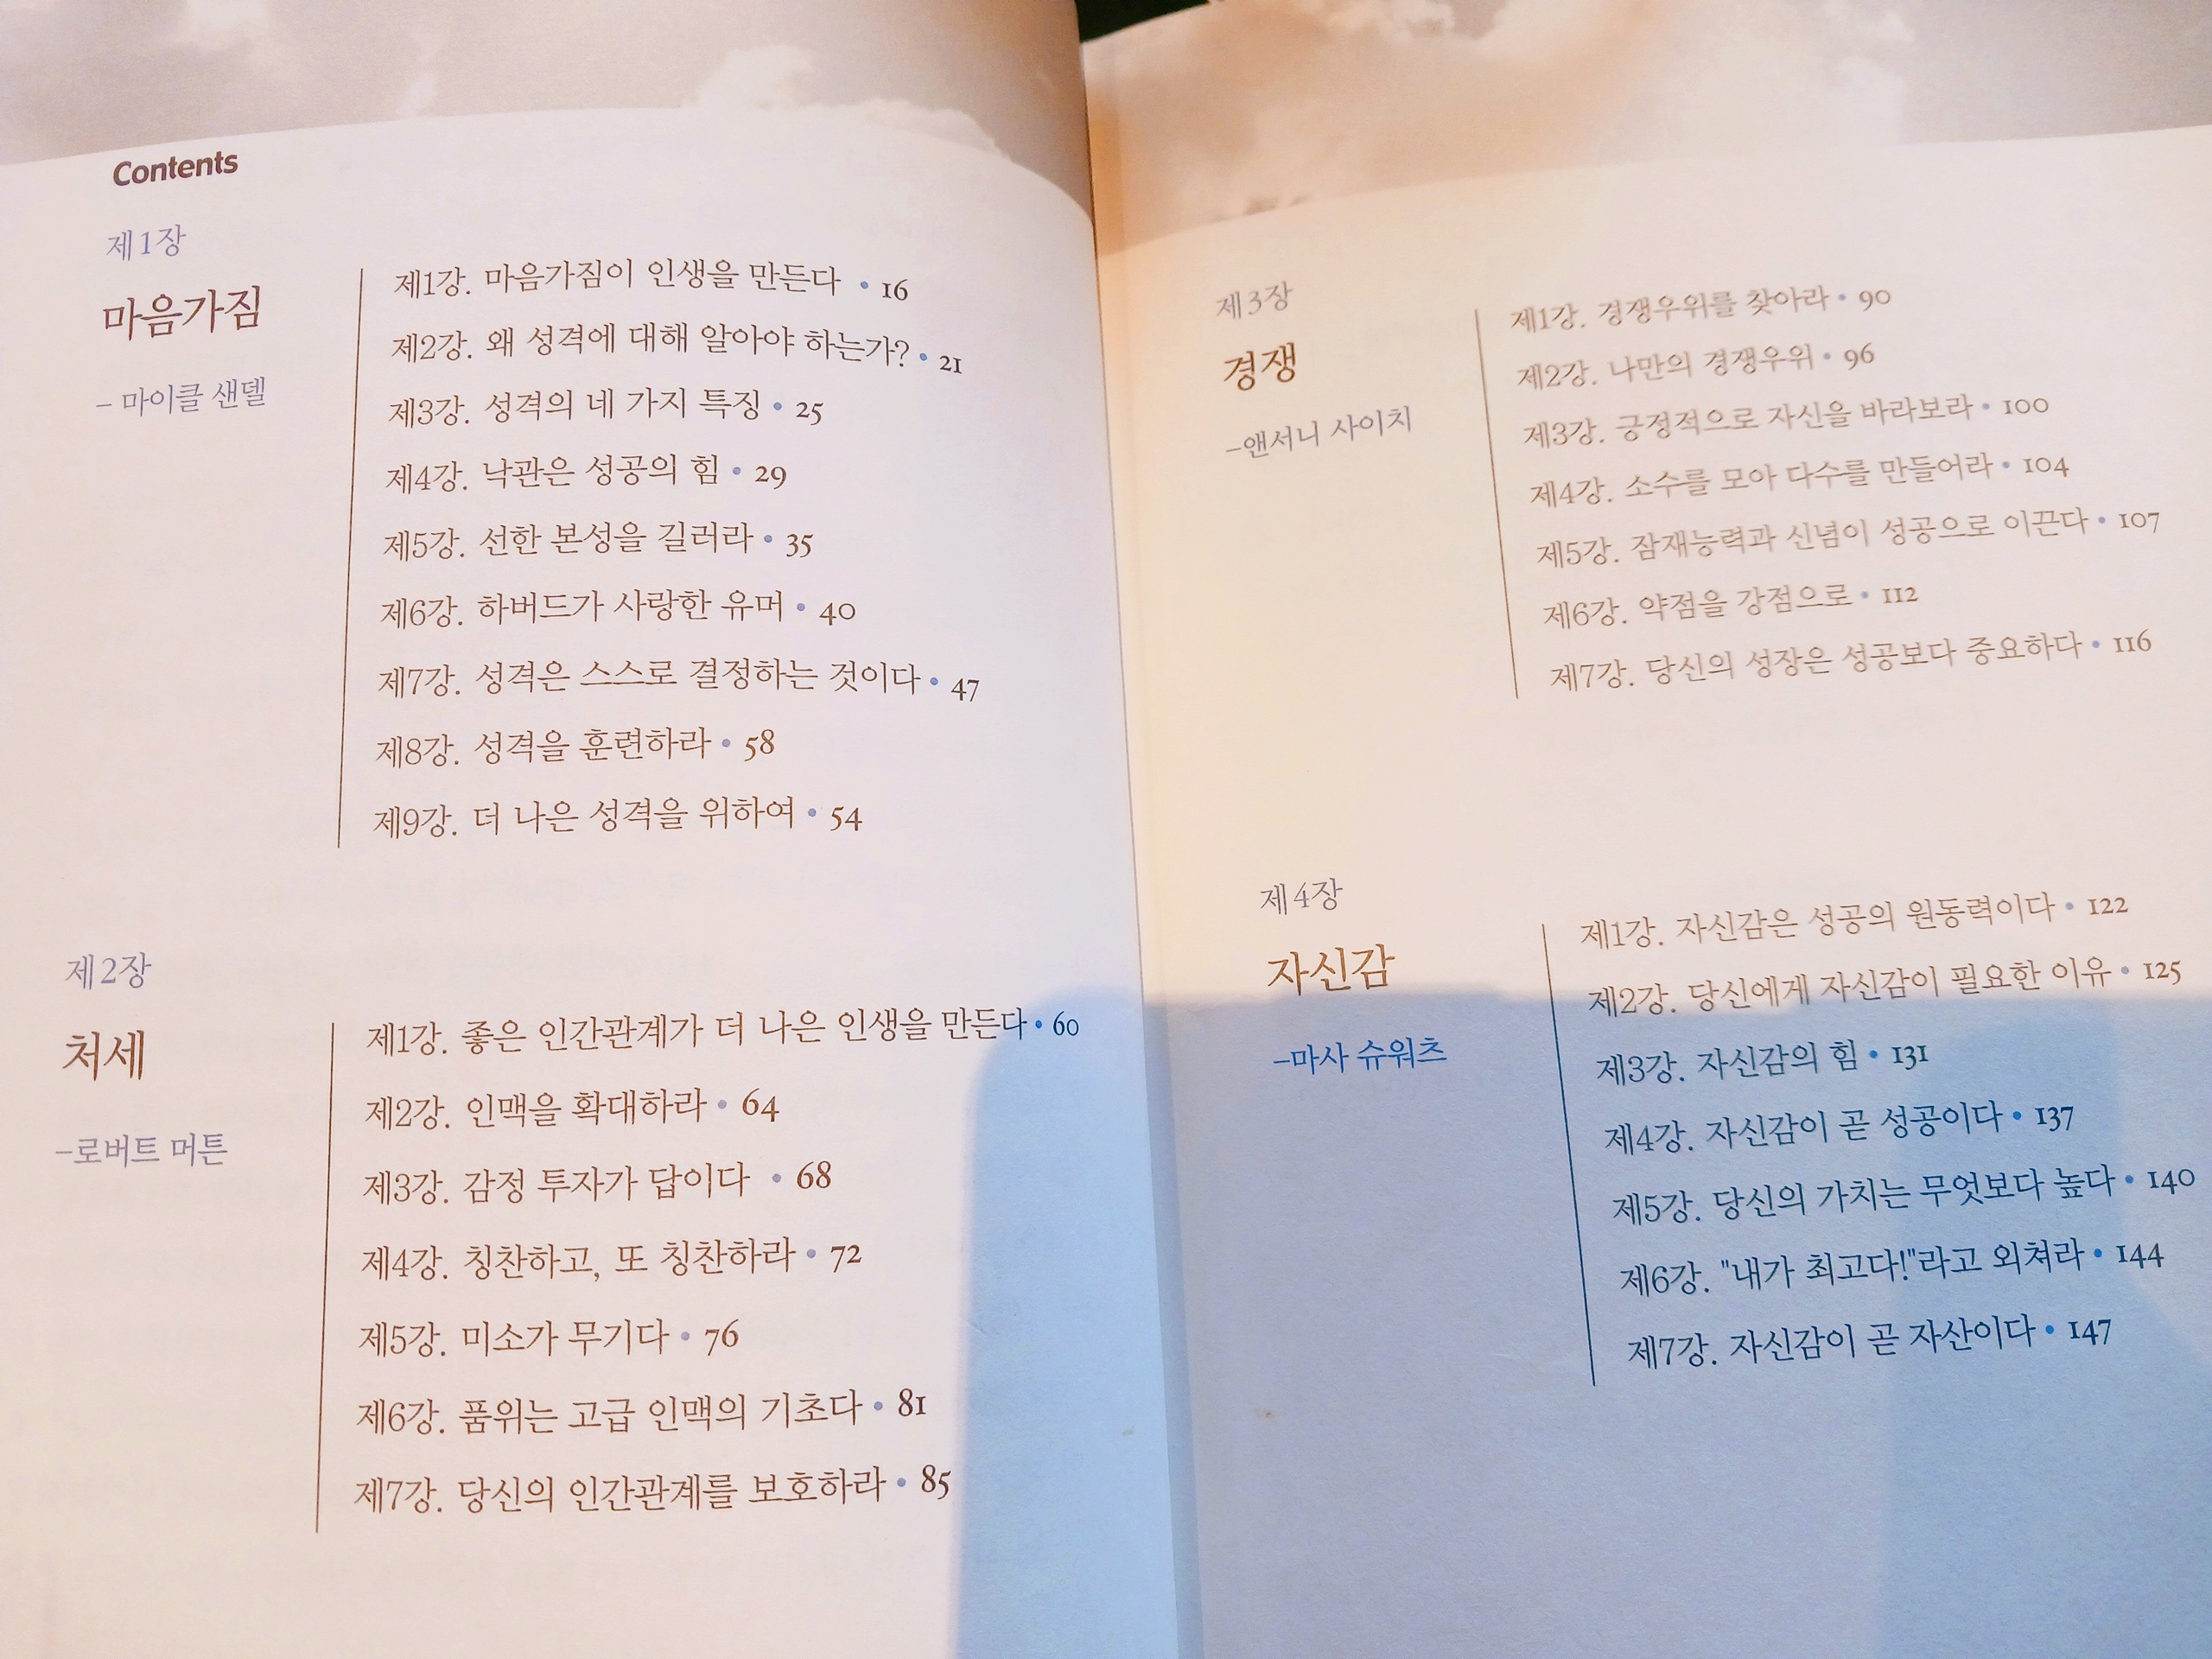 Contents
제1장
마음가짐
– 마이클 샌델
제1강. 마음가짐이 인생을 만든다 • 16
제2강. 왜 성격에 대해 알아야 하는가? • 21
제3강. 성격의 네 가지 특징 • 25
제4강. 낙관은 성공의 힘 • 29
제5강. 선한 본성을 길러라 • 35
제6강. 하버드가 사랑한 유머 • 40
제7강. 성격은 스스로 결정하는 것이다 • 47
제8강. 성격을 훈련하라 • 58
제9강. 더 나은 성격을 위하여 • 54
제2장
처세
–로버트 머튼
제1강. 좋은 인간관계가 더 나은 인생을 만든다 • 60
제2강. 인맥을 확대하라 • 64
제3강. 감정 투자가 답이다 • 68
제4강. 칭찬하고, 또 칭찬하라 • 72
제5강. 미소가 무기다 • 76
제6강. 품위는 고급 인맥의 기초다 • 81
제7강. 당신의 인간관계를 보호하라 • 85
제3장
경쟁
–앤서니 사이치
제1강. 경쟁우위를 찾아라 • 90
제2강. 나만의 경쟁우위 • 96
제3강. 긍정적으로 자신을 바라보라 • 100
제4강. 소수를 모아 다수를 만들어라 • 104
제5강. 잠재능력과 신념이 성공으로 이끈다 • 107
제6강. 약점을 강점으로 • 112
제7강. 당신의 성장은 성공보다 중요하다 • 116
제4장
자신감
–마사 슈워츠
제1강. 자신감은 성공의 원동력이다 • 122
제2강. 당신에게 자신감이 필요한 이유 • 125
제3강. 자신감의 힘 • 131
제4강. 자신감이 곧 성공이다 • 137
제5강. 당신의 가치는 무엇보다 높다 • 140
제6강. "내가 최고다!"라고 외쳐라 • 144
제7강. 자신감이 곧 자산이다 • 147